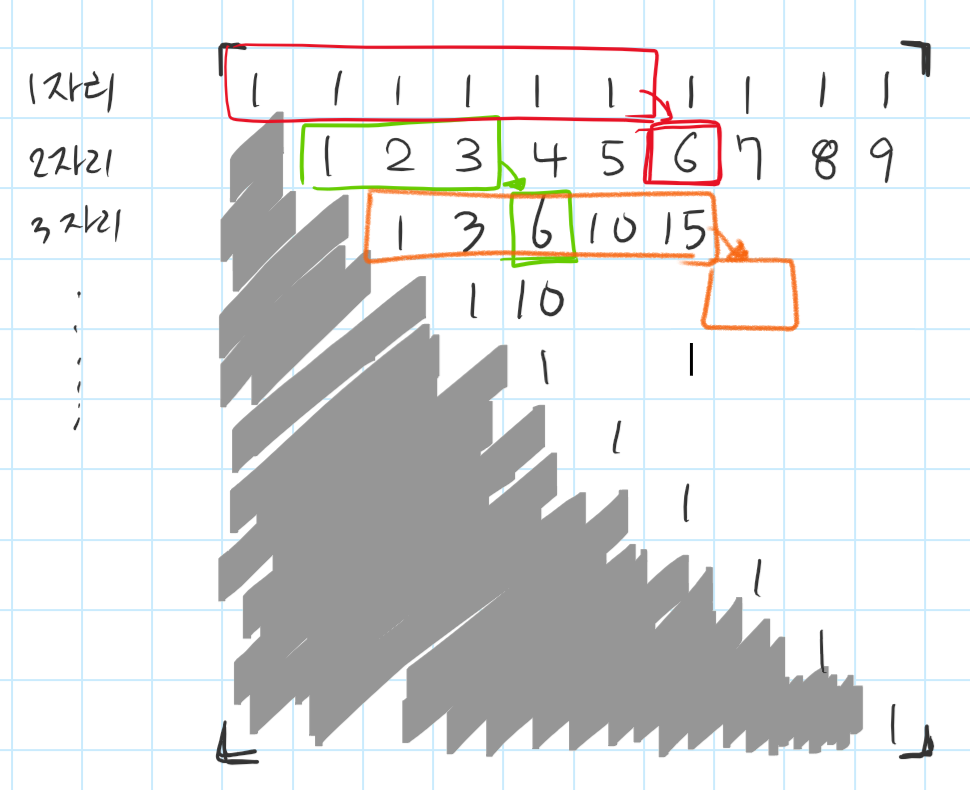 1자리 1 1 1 1 1 1 1 1 1 1
2자리 1 2 3 4 5 6 7 8 9
3자리 1 3 6 10 15
1 10
1 1
1
1
1
1
1